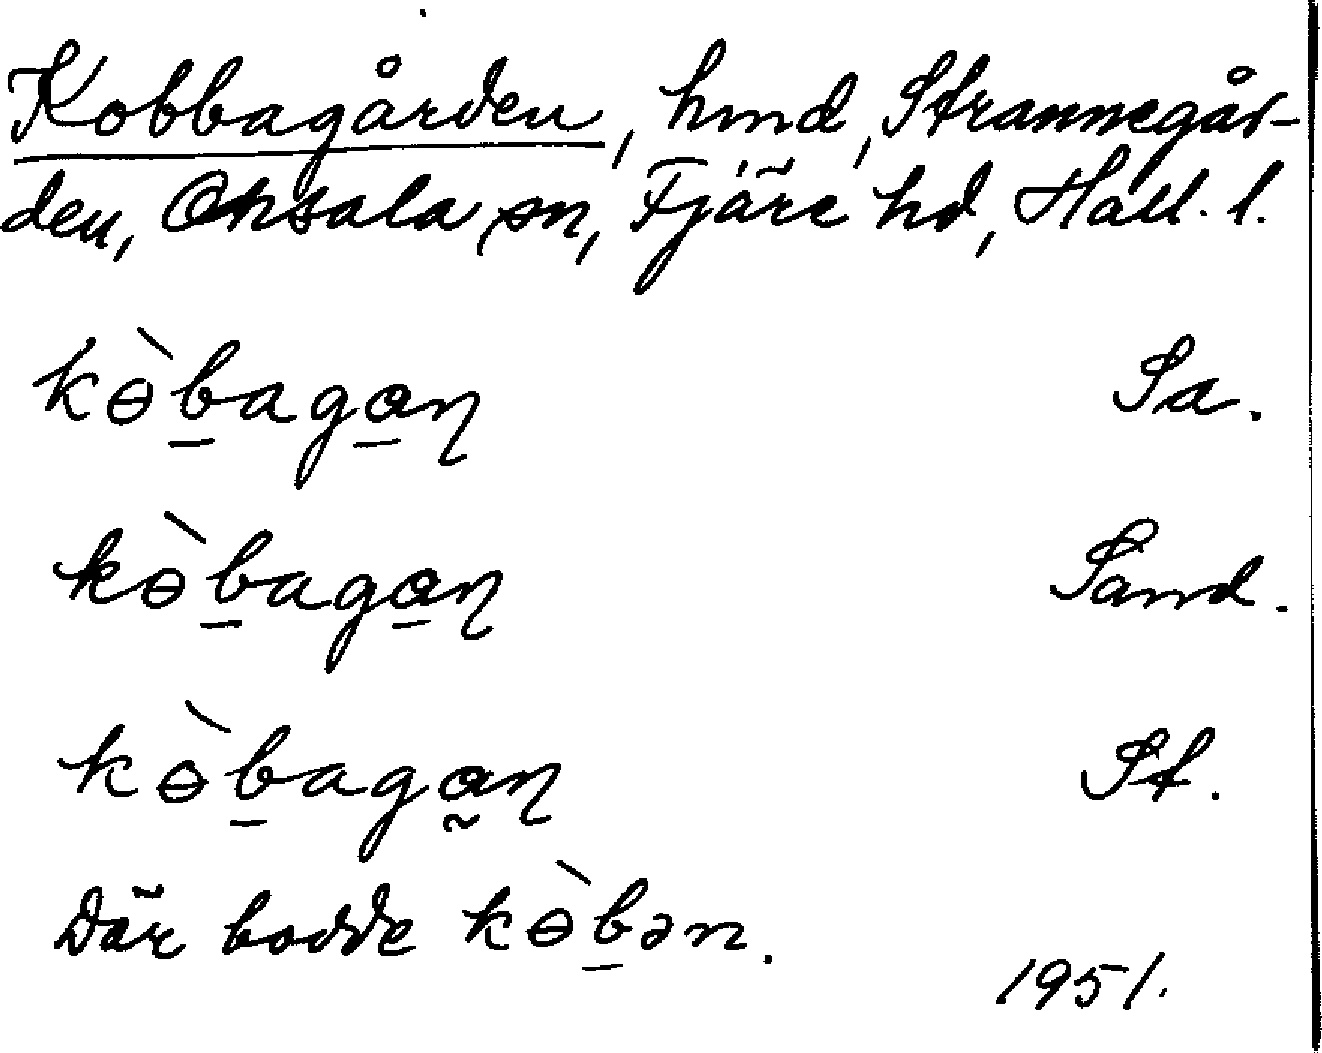 Kobbagården, hmd, Strannegår-
den, Onsala sn, Fjäre hd, Hall. l.
kɵ̀b̲aga̲ɳ Sa.
kɵ̀b̲aga̲ɳ Sand.
kɵ̀b̲aga̰ɳ St.
Där bodde kɵ̀b̲ən.
1951.